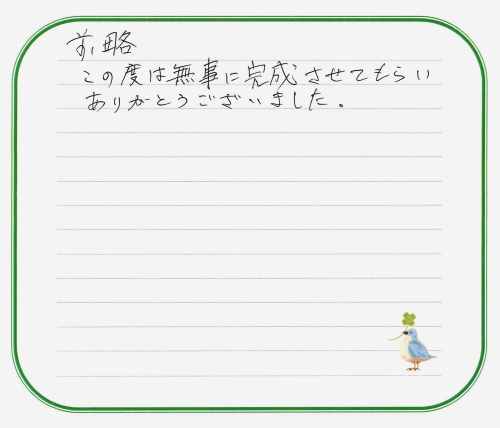 前略
この度は無事に完成させてもらい
ありがとうございました。